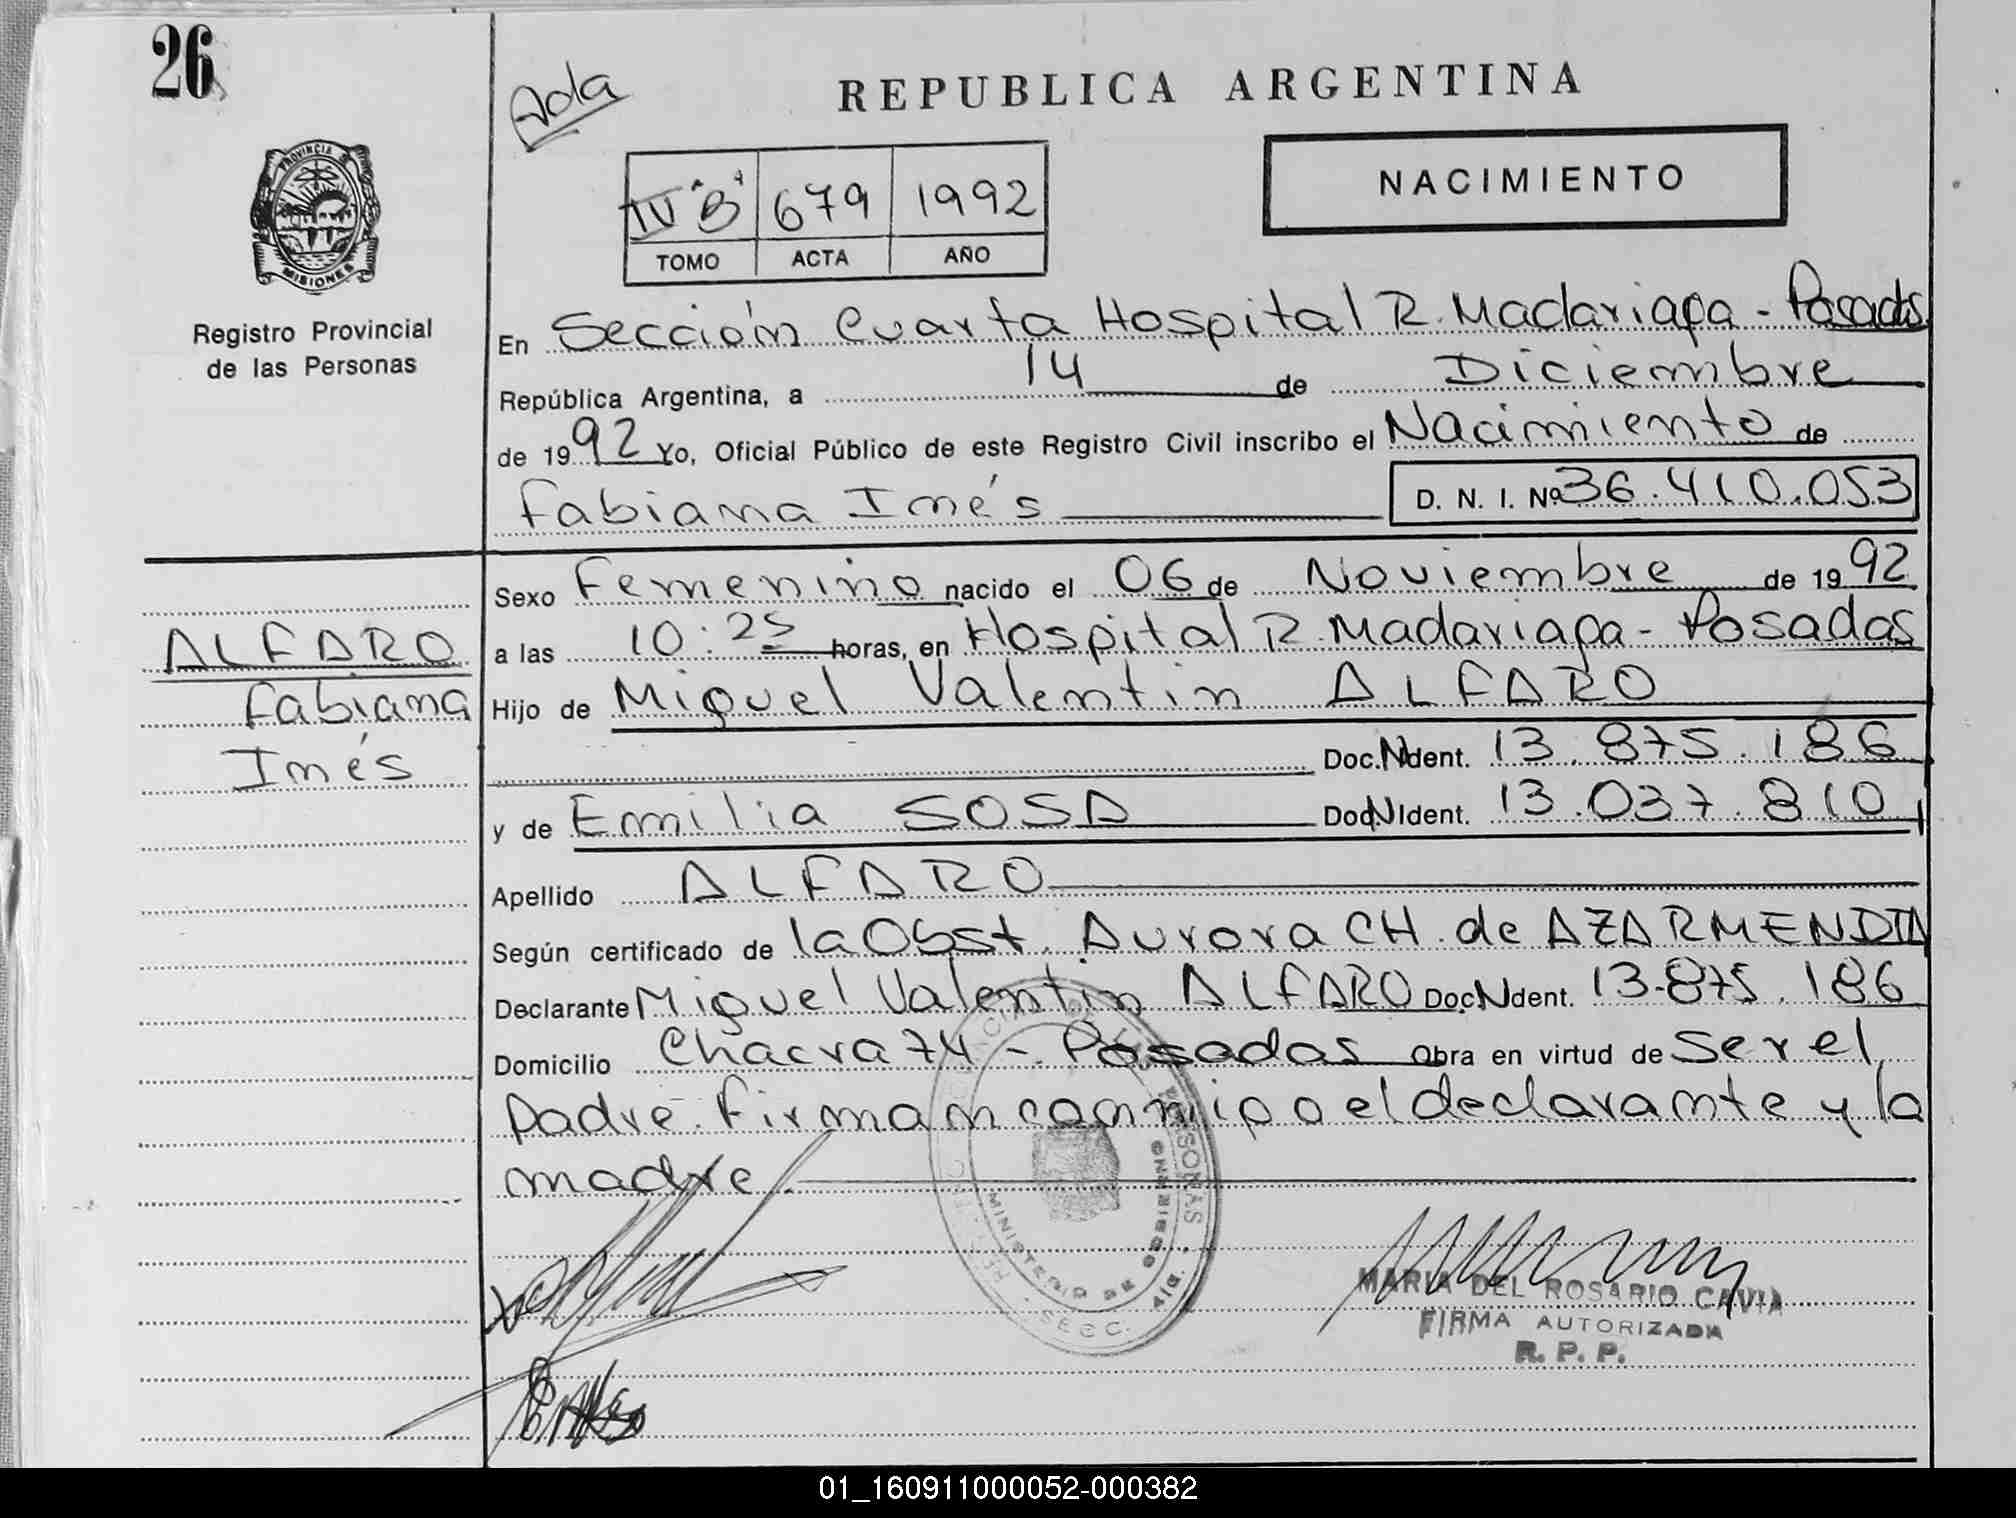 26
Ada
REPUBLICA ARGENTINA
NACIMIENTO
IV "B" 679 1992
TOMO ACTA AÑO
PROVINCIA DE
MISIONES
Registro Provincial
de las Personas
En Sección Cuarta Hospital R. Madariaga - Posadas
República Argentina, a 14 de Diciembre
de 1992 Yo, Oficial Público de este Registro Civil inscribo el Nacimiento de
Fabiana Inés D. N. I. Nº 36.410.053
Sexo Femenino nacido el 06 de Noviembre de 1992
ALFARO
Fabiana
Inés
a las 10:25 horas, en Hospital R. Madariaga - Posadas
Hijo de Miguel Valentin ALFARO
Doc. N Ident. 13.875.186
y de Emilia SOSA Doc. N Ident. 13.037.810
Apellido ALFARO
Según certificado de la Obst. Aurora CH. de AZARMENDIA
Declarante Miguel Valentin ALFARO Doc. N Ident. 13.875.186
Domicilio Chacra 74 - Posadas Obra en virtud de Ser el
padre. Firman conmigo el declarante y la
madre.
MINISTERIO DE GOBIERNO
SECC. 4ta.
MARIA DEL ROSARIO CAVIA
FIRMA AUTORIZADA
R. P. P.
01_160911000052-000382